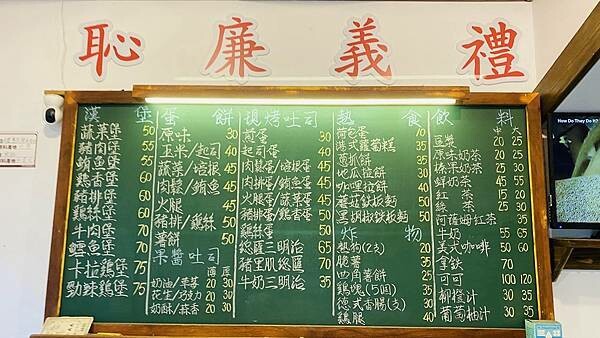 恥 廉 義 禮
How Do They Do It?
漢堡
蔬菜堡 50
豬肉堡 55
鮪魚堡 55
雞香堡 60
豬排堡 60
雞絲堡 60
牛肉堡 70
鱈魚堡 70
卡拉雞堡 75
勁辣雞堡 75
蛋餅
原味 30
玉米/起司 40
蔬菜/培根 45
肉鬆/鮪魚 45
火腿 45
豬排/雞絲 50
薯餅 50
果醬吐司
薄 厚
奶油/草莓 20 30
花生/巧克力 20 30
奶酥/蒜香 20 30
現烤吐司
煎蛋 30
起司蛋 40
肉鬆蛋/培根蛋
肉排蛋/鮪魚蛋
火腿蛋/蔬菜蛋
豬排蛋/雞香蛋
雞絲蛋 50
總匯三明治 65
豬里肌總匯
牛奶三明治 35
熱食
荷包蛋
港式蘿蔔糕 35
蔥抓餅 35
地瓜拉餅
咖哩拉餅
蘑菇鐵板麵 50
黑胡椒鐵板麵 50
炸物
熱狗(2支) 20
脆薯 35
四角薯餅
雞塊(5個) 35
德式香腸(支) 35
雞腿 40
飲料
中 大
豆漿 20 25
原味奶茶 25 30
榛果奶茶 25 30
鮮奶茶 45 55
紅茶 15 20
綠茶 25 30
阿薩姆紅茶 35
牛奶 55 65
美式咖啡 50 60
拿鐵 70
可可 100 120
柳橙汁
葡萄柚汁